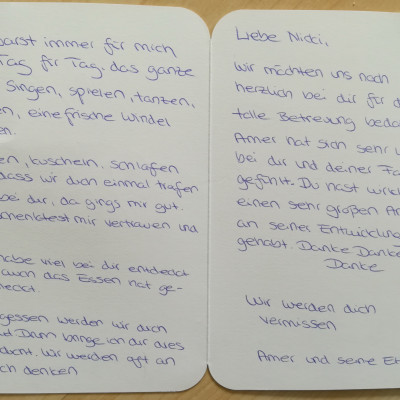 warst immer für mich
Tag für Tag. das ganze
singen, spielen, tanzen,
en, eine frische Windel
en.
en, kuscheln, schlafen
dass wir dich einmal trafen
bei dir, da gings mir gut.
schenktest mir vertrauen und
habe viel bei dir entdeckt
auch das Essen hat ge-
meckt.
gessen werden wir dich
Drum bringe ich dir dies
dacht. Wir werden oft an
ch denken
Liebe Nicki,
wir möchten uns noch
herzlich bei dir für d
tolle Betreuung beda
Amer hat sich sehr w
bei dir und deiner Fa
gefühlt. Du hast wirkl
einen sehr großen An
an seiner Entwicklun
gehabt. Danke Danke
Danke
Wir werden dich
vermissen
Amer und seine El